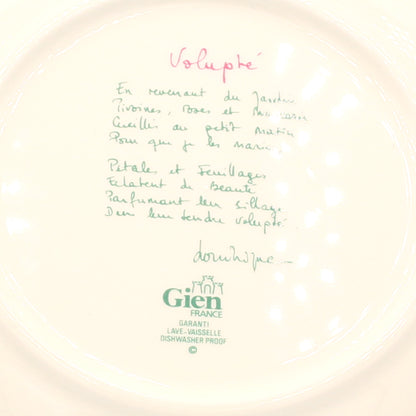 Volupté
En revenant du Jardin
Pivoines, roses et
Cueillis au petit matin
Pour que je les marie,
Pétales et Feuillages
Eclatent de Beauté
Parfumant leur sillage
Dans leur tendre volupté.
Dominique
Gien
FRANCE
GARANTI
LAVE-VAISSELLE
DISHWASHER PROOF
©